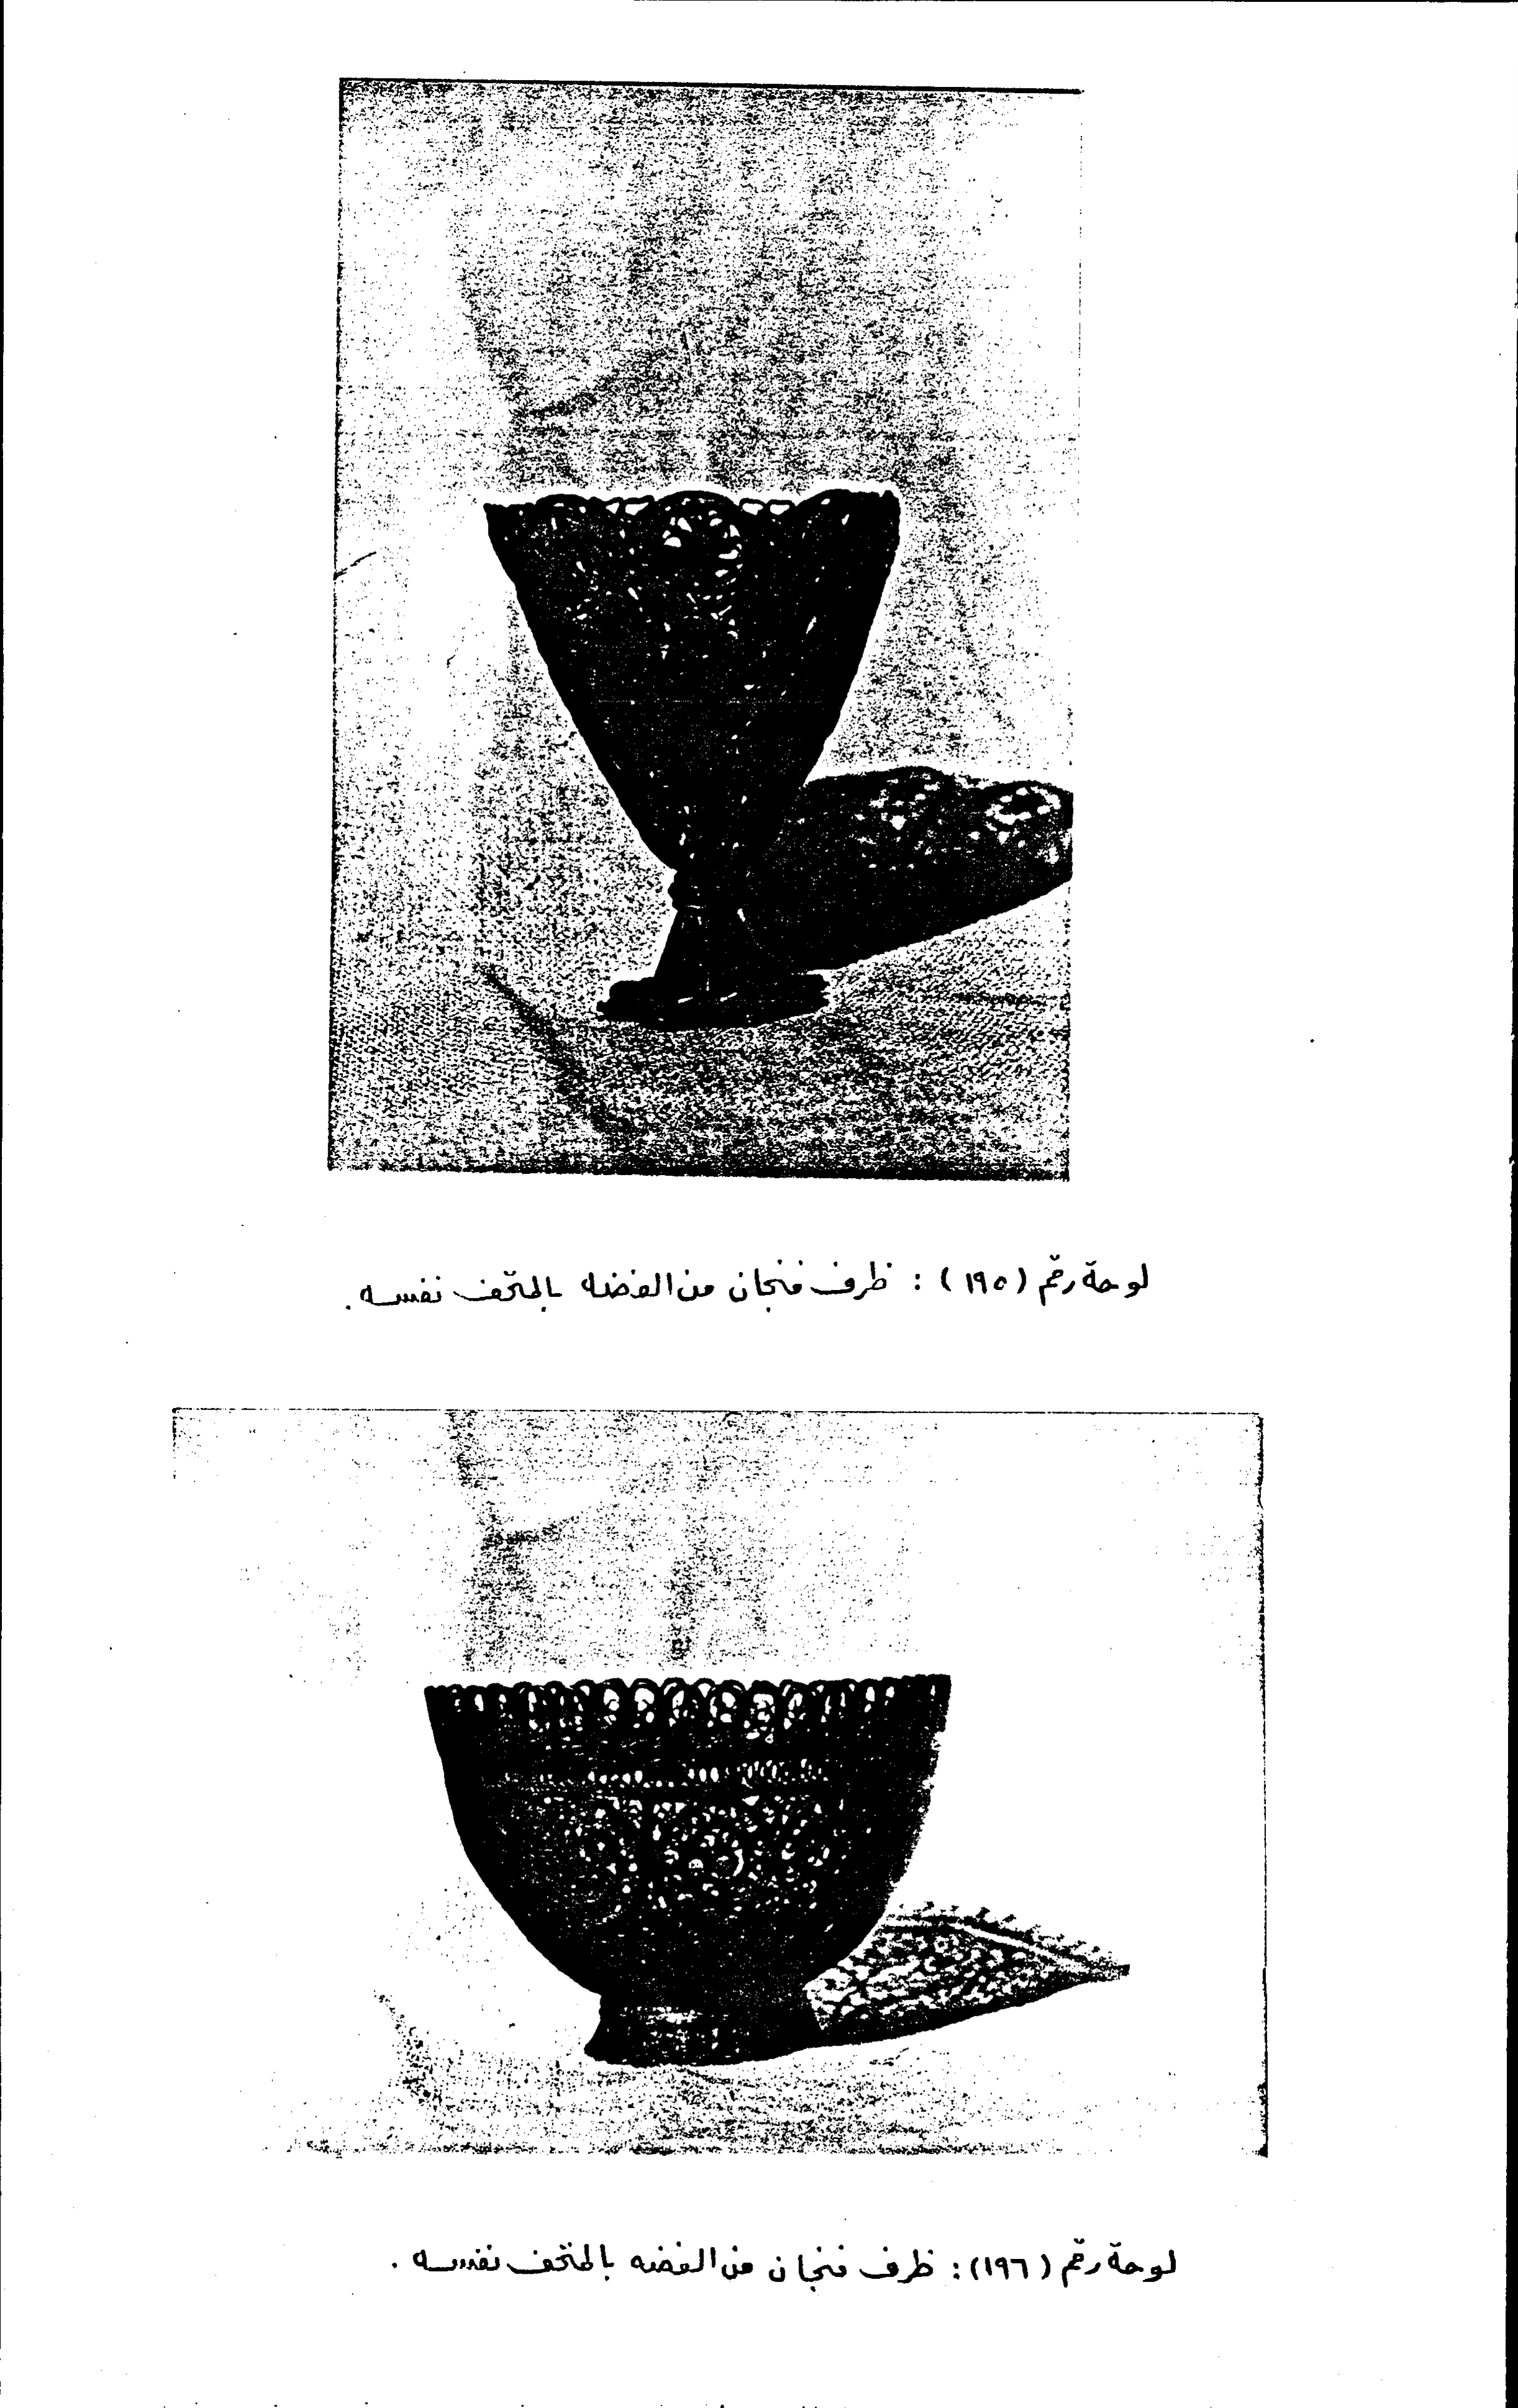 لوحة رقم (١٩٥) : ظرف فنجان من الفضه بالمتحف نفسه .
لوحة رقم (١٩٦) : ظرف فنجان من الفضه بالمتحف نفسه .